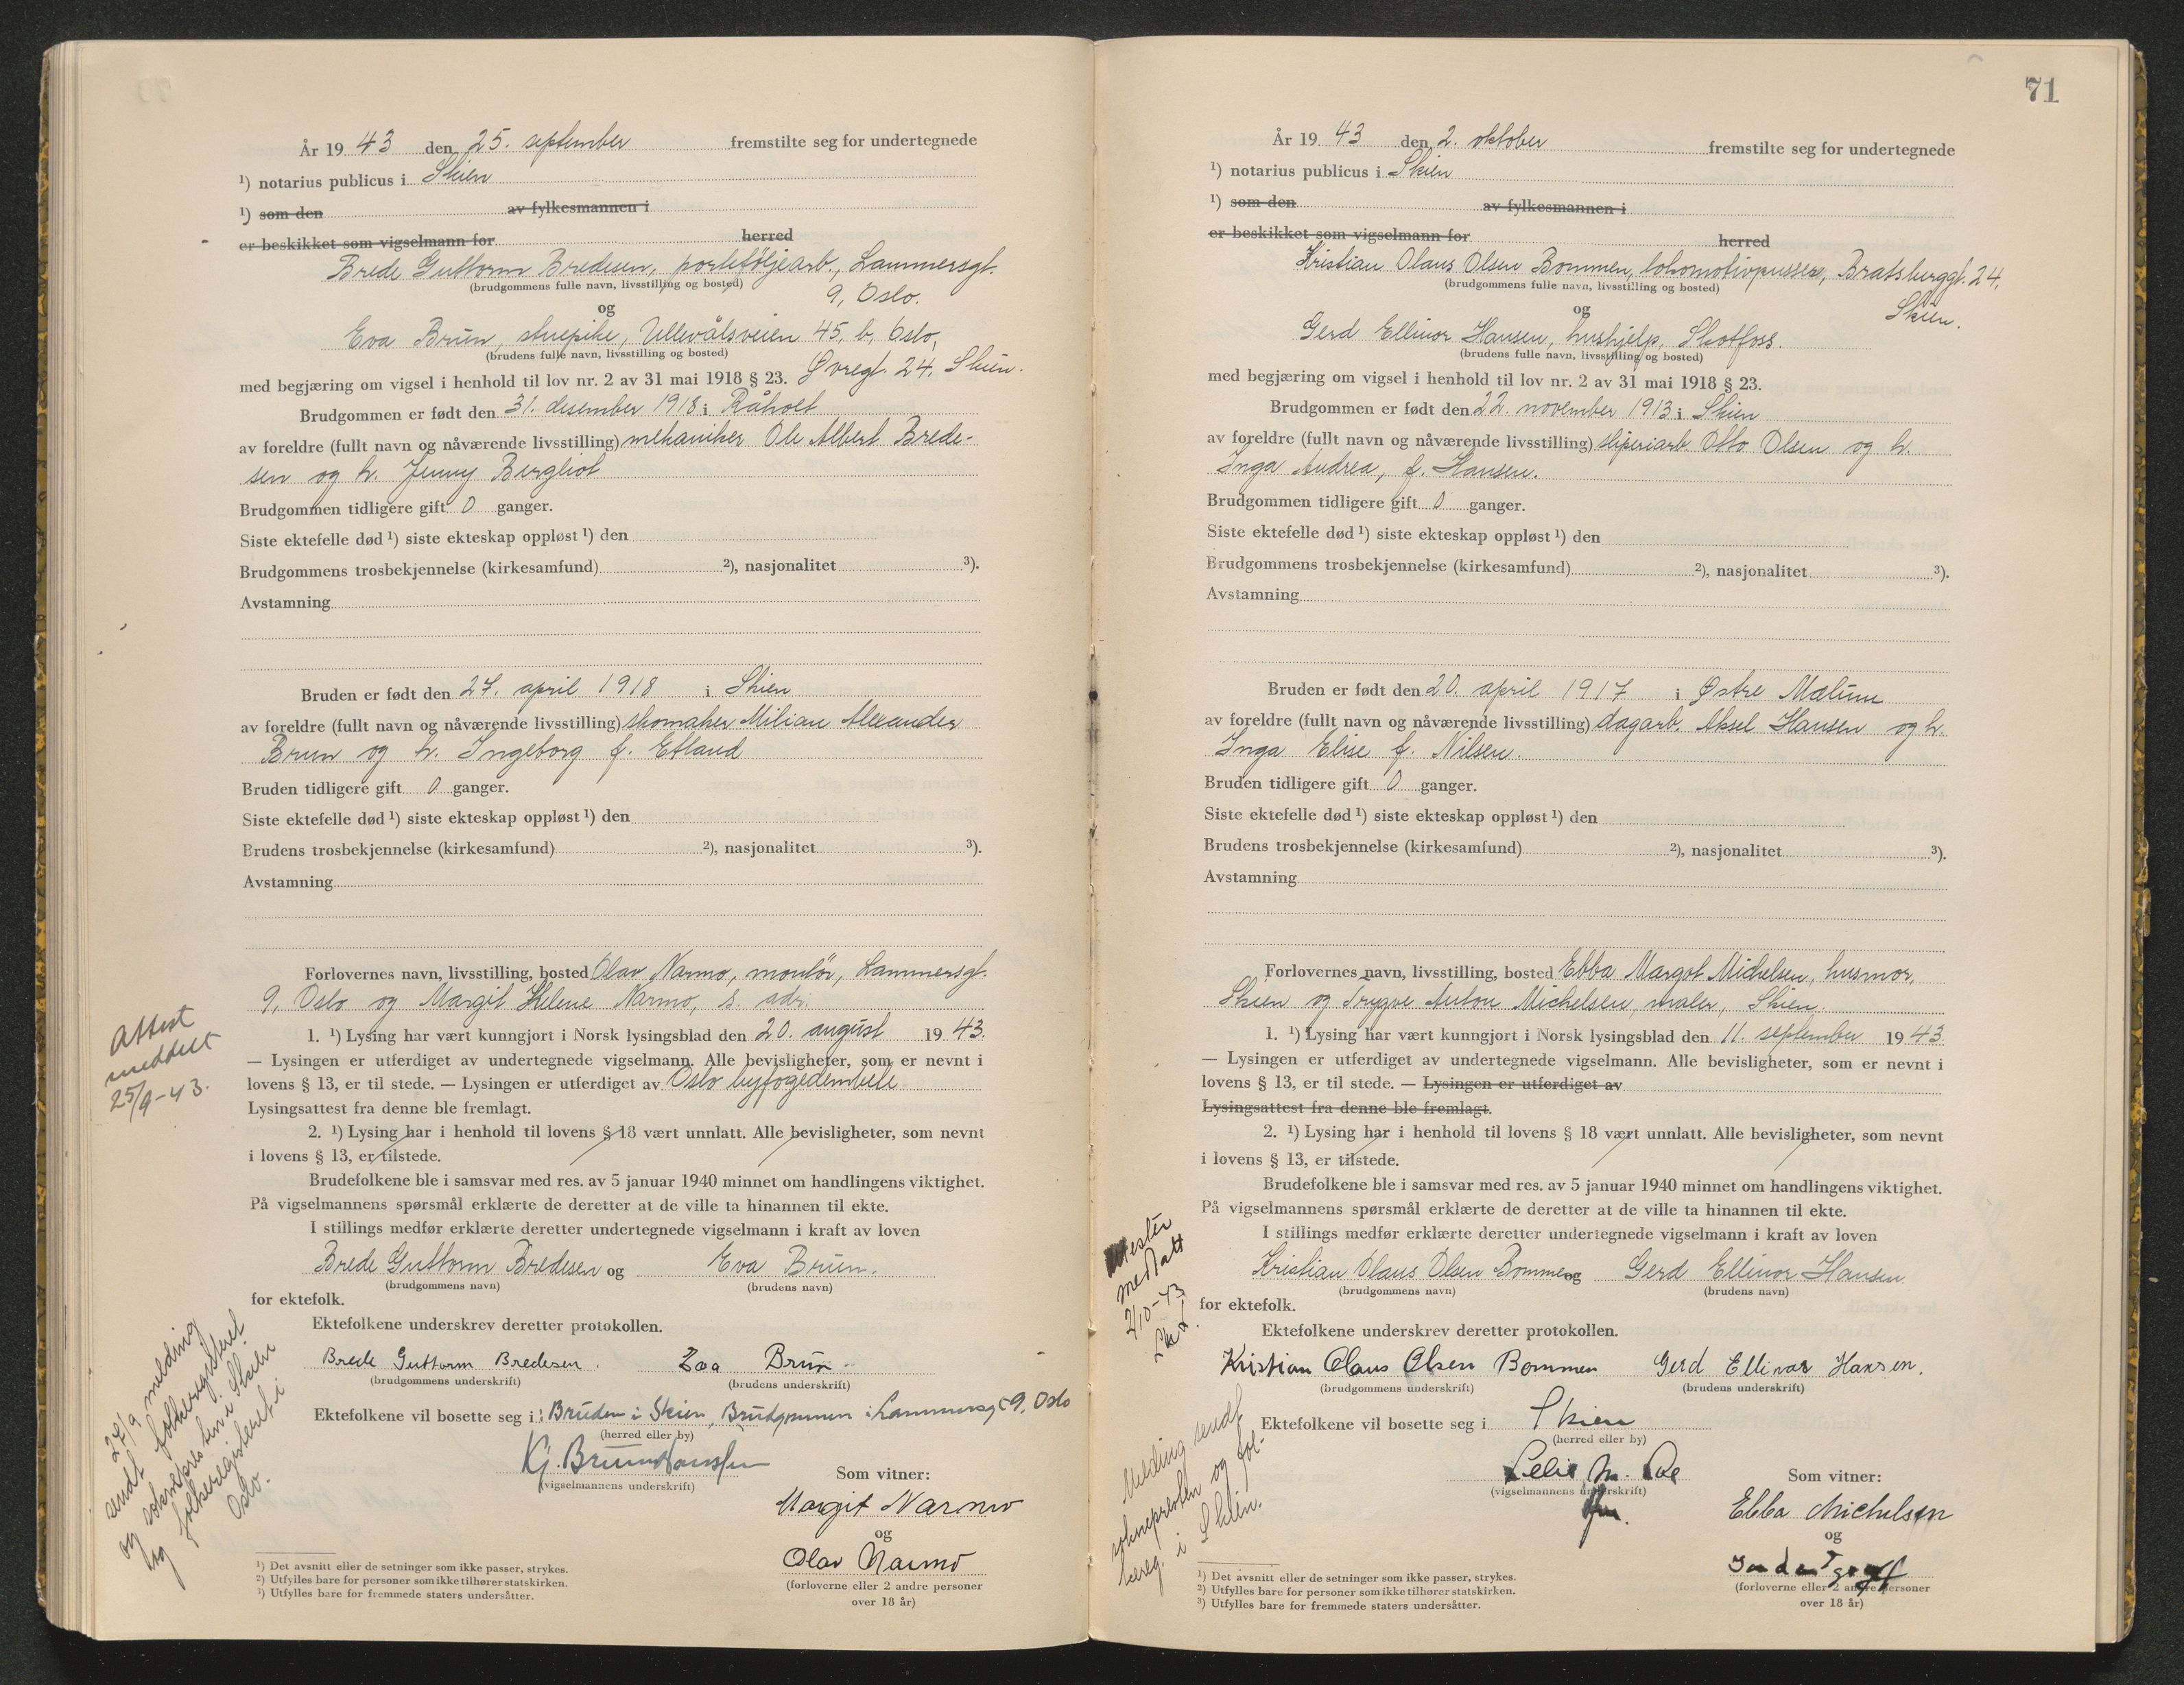 År 1943 den 25. september fremstilte seg for undertegnede
¹) notarius publicus i Skien
¹) som den av fylkesmannen i
er beskikket som vigselmann for herred
Brede Guttorm Bredesen, porteføljearb., Lammersgt.
(brudgommens fulle navn, livsstilling og bosted)
9, Oslo.
og
Eva Brun, stuepike, Ullevålsveien 45, b, Oslo,
(brudens fulle navn, livsstilling og bosted)
med begjæring om vigsel i henhold til lov nr. 2 av 31 mai 1918 § 23. Øvregt. 24. Skien.
Brudgommen er født den 31. desember 1918 i Råholt
av foreldre (fullt navn og nåværende livsstilling) mekaniker Ole Albert Brede-
sen og h. Jenny Bergliot
Brudgommen tidligere gift 0 ganger.
Siste ektefelle død ¹) siste ekteskap oppløst ¹) den
Brudgommens trosbekjennelse (kirkesamfund) ²), nasjonalitet ³).
Avstamning
Bruden er født den 27. april 1918 i Skien
av foreldre (fullt navn og nåværende livsstilling) skomaker Milian Alexander
Brun og h. Ingeborg f. Etland
Bruden tidligere gift 0 ganger.
Siste ektefelle død ¹) siste ekteskap oppløst ¹) den
Brudens trosbekjennelse (kirkesamfund) ²), nasjonalitet ³).
Avstamning
Forlovernes navn, livsstilling, bosted Olav Narmo, montør, Lammersgt.
9, Oslo og Margit Helene Narmo, s. adr.
1. ¹) Lysing har vært kunngjort i Norsk lysingsblad den 20. august 1943.
— Lysingen er utferdiget av undertegnede vigselmann. Alle bevisligheter, som er nevnt i
lovens § 13, er til stede. — Lysingen er utferdiget av Oslo byfogedembete
Lysingsattest fra denne ble fremlagt.
2. ¹) Lysing har i henhold til lovens § 18 vært unnlatt. Alle bevisligheter, som nevnt
i lovens § 13, er tilstede.
Brudefolkene ble i samsvar med res. av 5 januar 1940 minnet om handlingens viktighet.
På vigselmannens spørsmål erklærte de deretter at de ville ta hinannen til ekte.
I stillings medfør erklærte deretter undertegnede vigselmann i kraft av loven
Brede Guttorm Bredesen og Eva Brun.
(brudgommens navn) (brudens navn)
for ektefolk.
Ektefolkene underskrev deretter protokollen.
Brede Guttorm Bredesen. Eva Brun
(brudgommens underskrift) (brudens underskrift)
Ektefolkene vil bosette seg i: Bruden i Skien, Brudgommen i Lammersgt 9, Oslo
(herred eller by)
Kj. Brunn Hanssen
(vigselmannens underskrift)
Som vitner:
Margit Narmo
og
Olav Narmo
(forloverne eller 2 andre personer
over 18 år)
¹) Det avsnitt eller de setninger som ikke passer, strykes.
²) Utfylles bare for personer som ikke tilhører statskirken.
³) Utfylles bare for fremmede staters undersåtter.
Attest
meddelt
25/9-43.
27/9 melding
sendt folkeregisteret
og soknepresten i Skien
og folkeregisteret i
Oslo.
71
År 1943 den 2. oktober fremstilte seg for undertegnede
¹) notarius publicus i Skien
¹) som den av fylkesmannen i
er beskikket som vigselmann for herred
Kristian Olaus Olsen Bommen, lokomotivpusser, Bratsberggt. 24,
(brudgommens fulle navn, livsstilling og bosted)
Skien.
og
Gerd Ellinor Hansen, hushjelp, Skotfoss.
(brudens fulle navn, livsstilling og bosted)
med begjæring om vigsel i henhold til lov nr. 2 av 31 mai 1918 § 23.
Brudgommen er født den 22. november 1913 i Skien
av foreldre (fullt navn og nåværende livsstilling) sliperiarb. Otto Olsen og h.
Inga Andrea, f. Hansen.
Brudgommen tidligere gift 0 ganger.
Siste ektefelle død ¹) siste ekteskap oppløst ¹) den
Brudgommens trosbekjennelse (kirkesamfund) ²), nasjonalitet ³).
Avstamning
Bruden er født den 20. april 1917 i Østre Mælum
av foreldre (fullt navn og nåværende livsstilling) dagarb. Aksel Hansen og h.
Inga Elise f. Nilsen.
Bruden tidligere gift 0 ganger.
Siste ektefelle død ¹) siste ekteskap oppløst ¹) den
Brudens trosbekjennelse (kirkesamfund) ²), nasjonalitet ³).
Avstamning
Forlovernes navn, livsstilling, bosted Ebba Margot Michelsen, husmor,
Skien og Trygve Anton Michelsen, maler, Skien
1. ¹) Lysing har vært kunngjort i Norsk lysingsblad den 11. september 1943.
— Lysingen er utferdiget av undertegnede vigselmann. Alle bevisligheter, som er nevnt i
lovens § 13, er til stede. — Lysingen er utferdiget av
Lysingsattest fra denne ble fremlagt.
2. ¹) Lysing har i henhold til lovens § 18 vært unnlatt. Alle bevisligheter, som nevnt
i lovens § 13, er tilstede.
Brudefolkene ble i samsvar med res. av 5 januar 1940 minnet om handlingens viktighet.
På vigselmannens spørsmål erklærte de deretter at de ville ta hinannen til ekte.
I stillings medfør erklærte deretter undertegnede vigselmann i kraft av loven
Kristian Olaus Olsen Bommen og Gerd Ellinor Hansen
(brudgommens navn) (brudens navn)
for ektefolk.
Ektefolkene underskrev deretter protokollen.
Kristian Olaus Olsen Bommen Gerd Ellinor Hansen.
(brudgommens underskrift) (brudens underskrift)
Ektefolkene vil bosette seg i Skien
(herred eller by)
(vigselmannens underskrift)
Som vitner:
Ebba Michelsen
og
(forloverne eller 2 andre personer
over 18 år)
¹) Det avsnitt eller de setninger som ikke passer, strykes.
²) Utfylles bare for personer som ikke tilhører statskirken.
³) Utfylles bare for fremmede staters undersåtter.
meddelt
2/10-43
Melding sendt
soknepresten og fol-
kereg. i Skien.